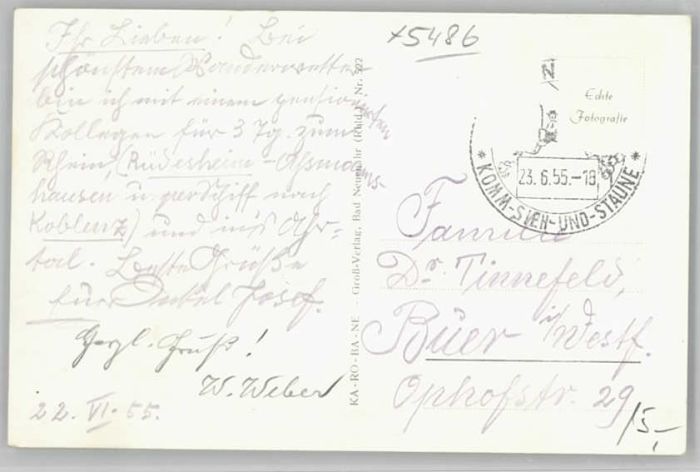 Ihr Lieben! Bei
schönstem Wanderwetter
bin ich mit einem pensionierten
Kollegen für 3 Tg. zum
Rhein, (Rüdesheim - Assmanns-
hausen u. perschiff nach
Koblenz) und ins Ahr-
tal. Beste Grüße
Onkel Josef.
Hrzl. Gruß!
W. Weber
22. VI. 55.
KA-RO-BA-NE - Groß-Verlag, Bad Neuenahr (Rhld.) Nr. 522
x5486
Echte
Fotografie
23.6.55.-18
* KOMM-SIEH-UND-STAUNE *
Familie
Dr Tinnefeld,
Buer i/Westf.
Ophofstr. 29
/5,-